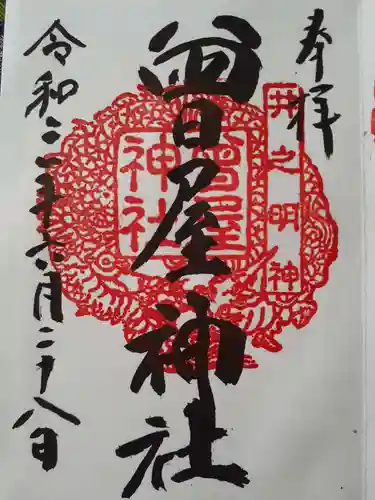 奉拝
井之明神
曽屋神社
曾屋
神社
令和二年六月二十八日